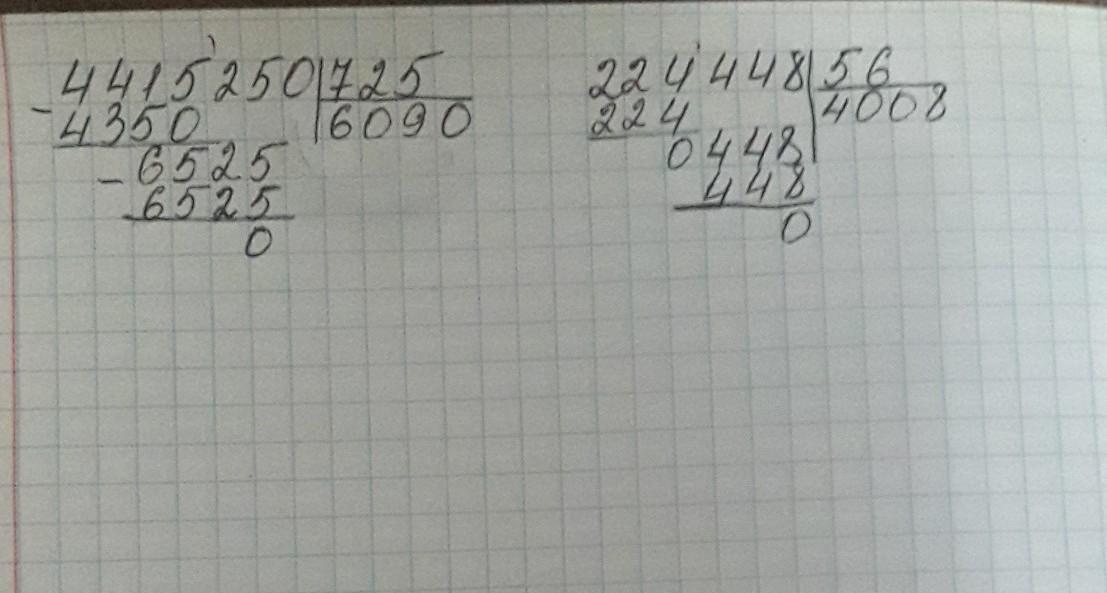 4415250 725
- 4350 6090
- 6525
6525
0
224448 56
224 4008
0448
448
0